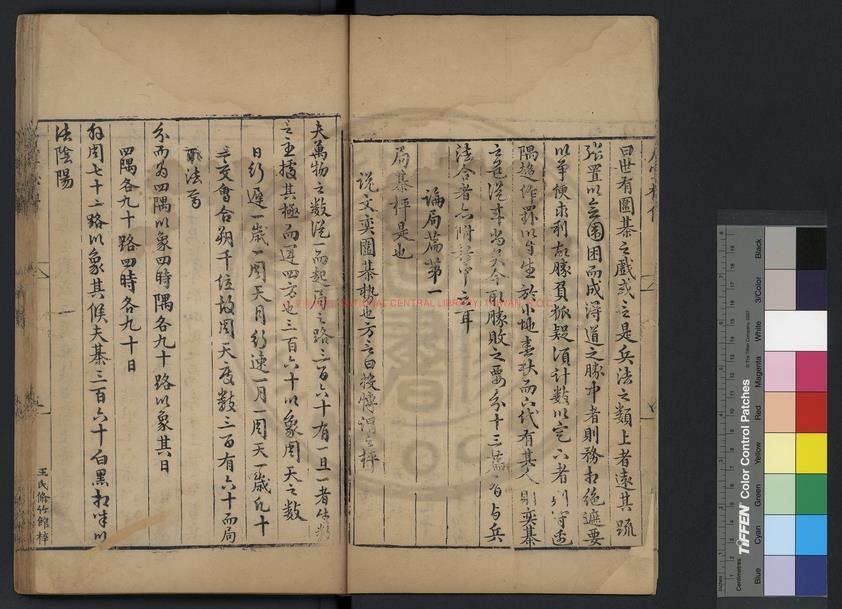 曰世有圍棊之戲或言是兵法之類上者遠其疏
張置以會圍因而成得道之勝中者則務相絕遮要
以爭便求利故勝負狐疑須計數以定下者則守邊
隅趨作罫以自生於小地春秋而下代有其人則奕棊
之道從來尚矣今取勝敗之要分十三篇有與兵
法合者亦附於中云耳
論局篇第一
局棊枰是也
說文奕圍棊執也方言曰投博謂之枰
夫萬物之數從一而起局之路三百六十有一且一者生數
之主據其極而運四方也三百六十以象周天之數
日行遲一歲一周天月行速一月一周天一歲凡十
二交會合朔千位故周天度數三百有六十而局
取法焉
分而為四隅以象四時隅各九十路以象其日
四隅各九十路四時各九十日
外周七十二路以象其候夫棊三百六十白黑相半以
法陰陽
王氏偷竹館梓
NATIONAL CENTRAL LIBRARY, TAIWAN, R.O.C.
TIFFEN Color Control Patches
© The Tiffen Company, 2007
Centimetres
Inches
Blue
Cyan
Green
Yellow
Red
Magenta
White
3/Color
Black